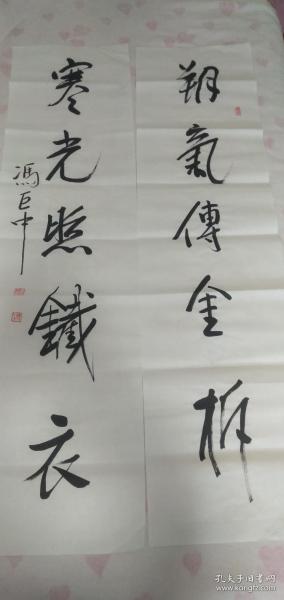 朔氣傳金柝
寒光照鐵衣
馮巨中
孔夫子旧书网